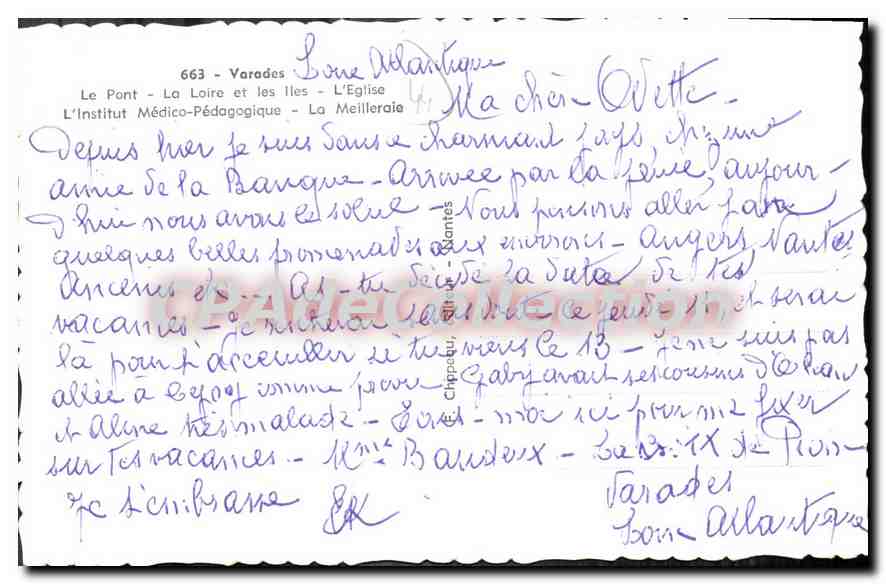 663 - Varades Loire Atlantique
Le Pont - La Loire et les Iles - L'Eglise
L'Institut Médico-Pédagogique - La Meilleraie
Ma chère Odette -
Depuis hier je suis dans ce charmant pays, chez une
amie de la Banque - Arrivée par la pluie, aujour-
d'hui nous avons le soleil - Nous pensons aller faire
quelques belles promenades aux environs - Angers, Nantes
Ancenis etc... As-tu décidé la date de tes
vacances - Je sans doute ce jeudi 11, et serai
là pour t'accueillir si tu viens le 13 - Je ne suis pas
allée à comme prévu Gaby avait ses cousins d'Oran
et Aline très malade - Ecris-moi ici pour me fixer
sur tes vacances - Mme Baudoux - La Croix de Pierre
Varades
Je t'embrasse EK
Loire Atlantique
Chippeau, Editeur - Nantes
CPADeCollection